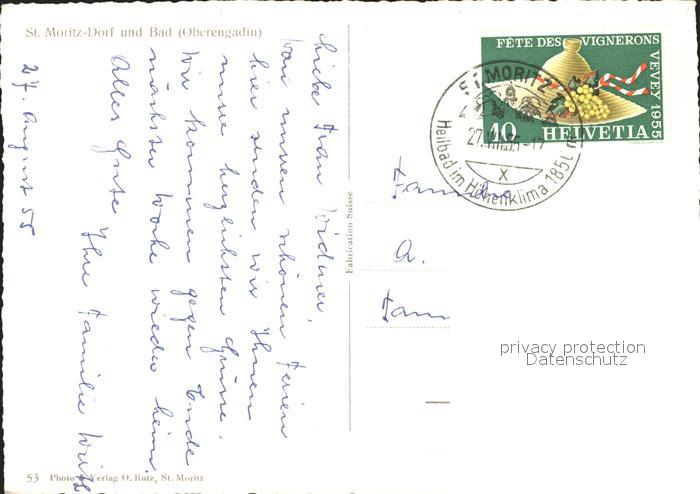 St. Moritz-Dorf und Bad (Oberengadin)
27. August 55
Liebe Frau Widmer,
Von unsern schönen Ferien
hier senden wir Ihnen
unsre herzlichsten Grüsse.
Wir kommen gegen Ende
nächster Woche wieder heim.
Alles Gute
Ihre Familie Wirth
53 Photo Verlag O. Rutz, St. Moritz
Fabrication Suisse
FÊTE DES VIGNERONS
VEVEY 1955
10 HELVETIA
ST. MORITZ
27.VIII.55-17
X
Heilbad im Höhenklima 1850 m
Familie
A.
Fam
privacy protection
Datenschutz